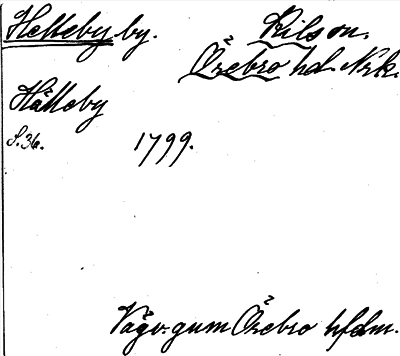 Helleby by. Kils sn.
Örebro hd. Nrk.
Hälleby
S. 36. 1799.
Vägv. gm Örebro hfdm.